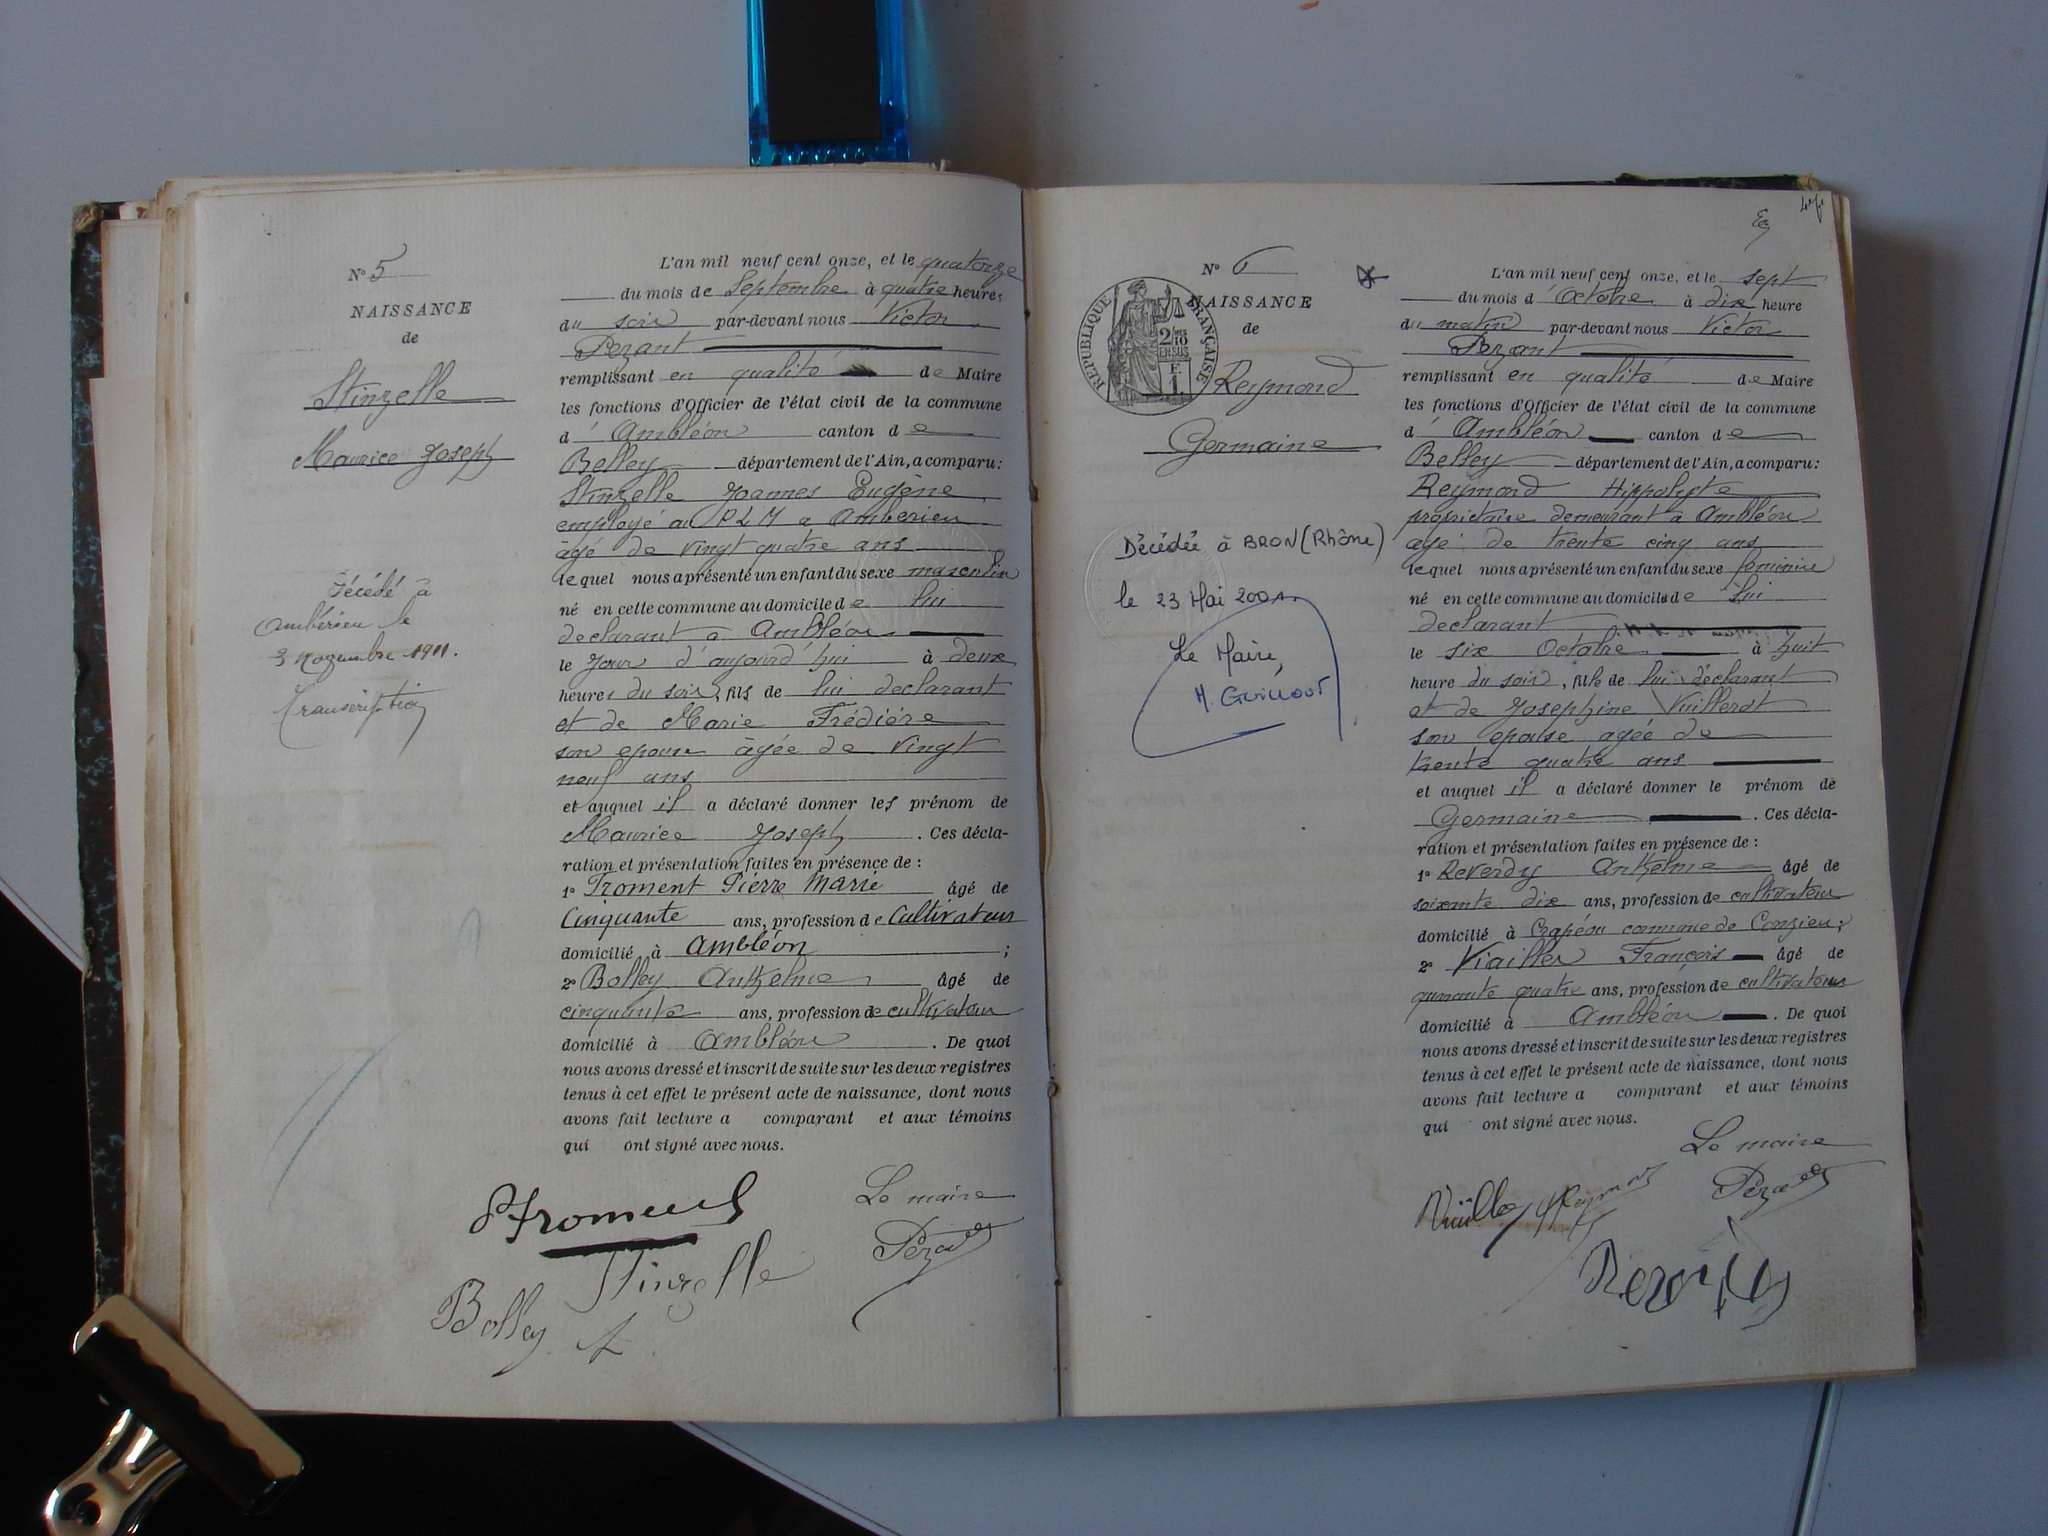 N° 5
NAISSANCE
de
Stinzelle
Maurice Joseph
Décédé à
Ambérieu le
3 novembre 1911.
Transcription
L'an mil neuf cent onze, et le quatorze
du mois de Septembre à quatre heures
du soir par-devant nous Victor
Pezant
remplissant en qualité de Maire
les fonctions d'Officier de l'état civil de la commune
d'Ambléon canton de
Belley département de l'Ain, a comparu:
Stinzelle Joannes Eugène
employé au PLM a Amberieu
âgé de vingt quatre ans
lequel nous a présenté un enfant du sexe masculin
né en cette commune au domicile de lui
declarant a Ambléon
le jour d'aujourd'hui à deux
heures du soir, fils de lui declarant
et de Marie Frédière
son epouse âgée de vingt
neuf ans
et auquel il a déclaré donner les prénom de
Maurice Joseph . Ces décla-
ration et présentation faites en présence de :
1° Froment Pierre Marie âgé de
Cinquante ans, profession de Cultivateur
domicilié à Ambléon ;
2° Bolley Anthelme âgé de
cinquante ans, profession de cultivateur
domicilié à Ambléon . De quoi
nous avons dressé et inscrit de suite sur les deux registres
tenus à cet effet le présent acte de naissance, dont nous
avons fait lecture a comparant et aux témoins
qui ont signé avec nous.
Froment
Le maire
Pezant
Stinzelle
Bolley
N° 6
NAISSANCE
de
RÉPUBLIQUE FRANÇAISE
2/10 EN SUS
F. 1
Reymond
Germaine
Décédée à BRON (Rhône)
le 23 Mai 2001.
Le Maire,
M. Guillout
L'an mil neuf cent onze, et le sept
du mois d'Octobre à dix heure
du matin par-devant nous Victor
Pezant
remplissant en qualité de Maire
les fonctions d'Officier de l'état civil de la commune
d'Ambléon canton de
Belley département de l'Ain, a comparu:
Reymond Hippolyte
propriétaire demeurant a Ambléon
agé de trente cinq ans
lequel nous a présenté un enfant du sexe feminin
né en cette commune au domicile de lui
declarant
le six Octobre à huit
heure du soir, fille de lui déclarant
et de Josephine Vuillerot
son epouse agée de
trente quatre ans
et auquel il a déclaré donner le prénom de
Germaine . Ces décla-
ration et présentation faites en présence de :
1° Reverdy Anthelme âgé de
soixante dix ans, profession de cultivateur
domicilié à Crapéou commune de Conzieu ;
2° Viallier François âgé de
quarante quatre ans, profession de cultivateur
domicilié à Ambléon . De quoi
nous avons dressé et inscrit de suite sur les deux registres
tenus à cet effet le présent acte de naissance, dont nous
avons fait lecture a comparant et aux témoins
qui ont signé avec nous.
Le maire
Pezant
Reymond
Reverdy